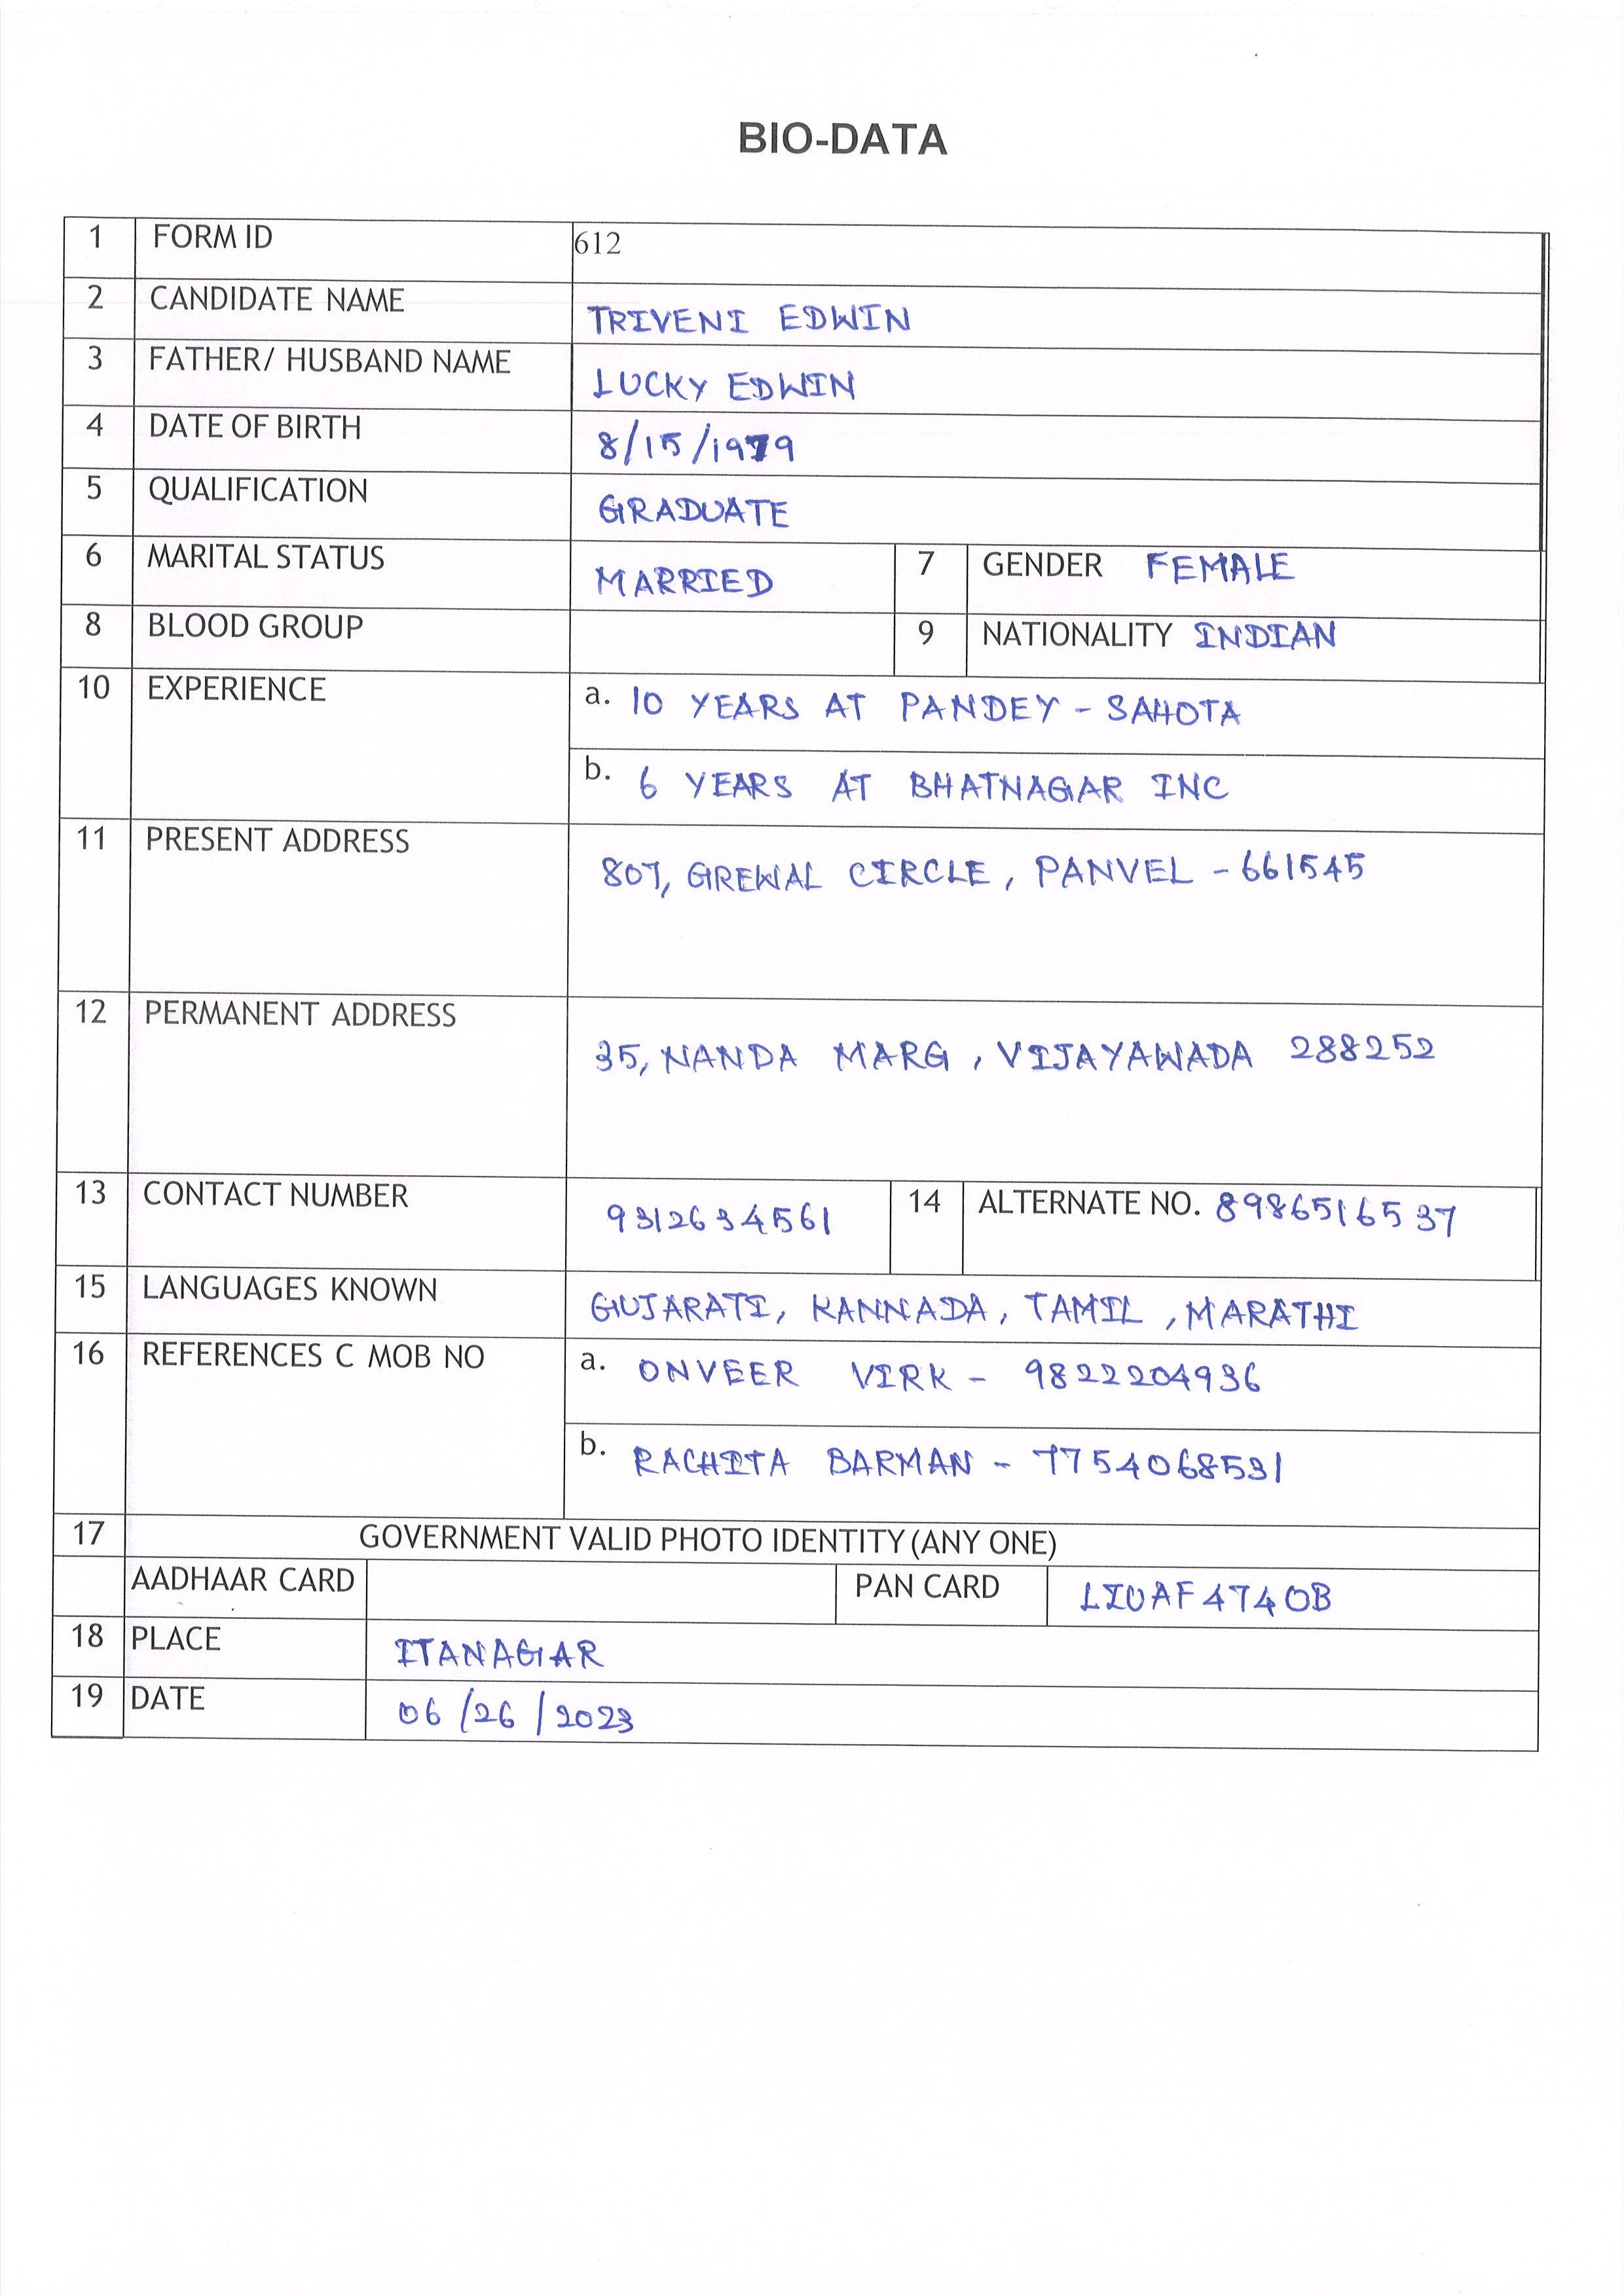 BIO-DATA
1 FORM ID 612
2 CANDIDATE NAME TRIVENI EDWIN
3 FATHER/ HUSBAND NAME LUCKY EDWIN
4 DATE OF BIRTH 8/15/1979
5 QUALIFICATION GRADUATE
6 MARITAL STATUS MARRIED 7 GENDER FEMALE
8 BLOOD GROUP 9 NATIONALITY INDIAN
10 EXPERIENCE a. 10 YEARS AT PANDEY - SAHOTA
b. 6 YEARS AT BHATNAGAR INC
11 PRESENT ADDRESS 807, GREWAL CIRCLE, PANVEL - 661545
12 PERMANENT ADDRESS 35, NANDA MARG, VIJAYAWADA 288252
13 CONTACT NUMBER 9312634561 14 ALTERNATE NO. 8986516537
15 LANGUAGES KNOWN GUJARATI, KANNADA, TAMIL, MARATHI
16 REFERENCES C MOB NO a. ONVEER VIRK - 9822204936
b. RACHITA BARMAN - 7754068531
17 GOVERNMENT VALID PHOTO IDENTITY (ANY ONE)
AADHAAR CARD PAN CARD LIUAF4740B
18 PLACE ITANAGAR
19 DATE 06/26/2023